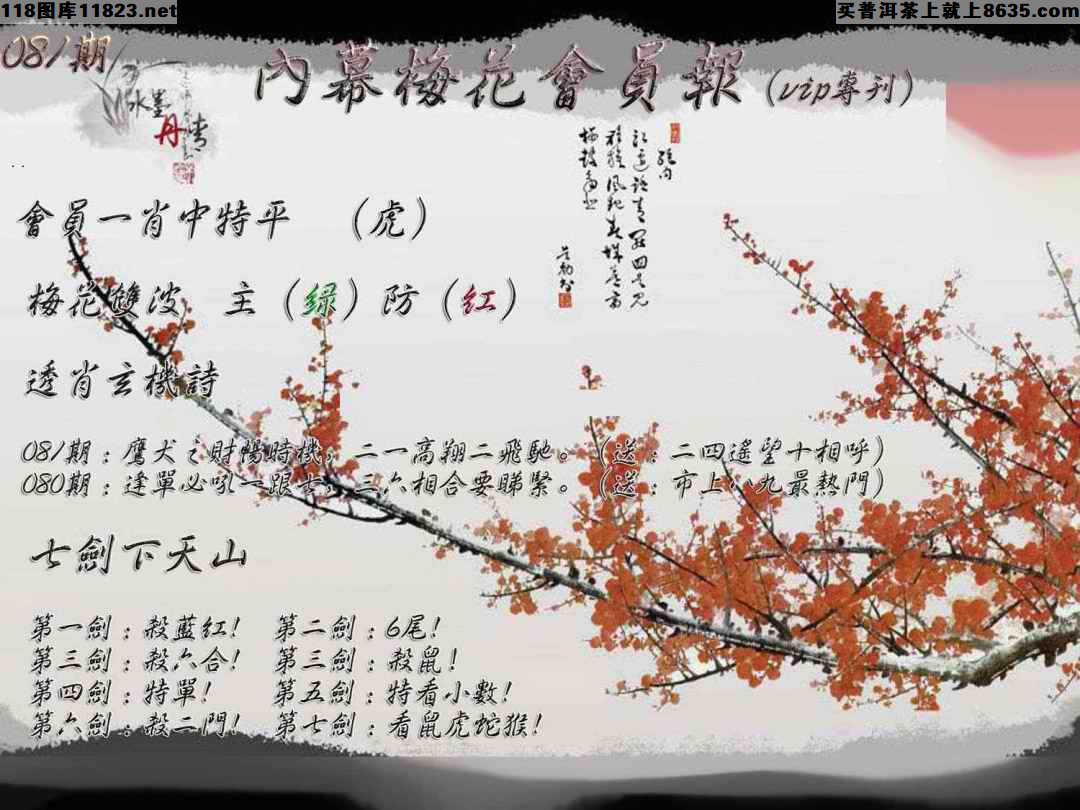 118图库11823.net
买普洱茶上就上8635.com
081期
內幕梅花會員報(vip專刊)
水墨
丹青
會員一肖中特平 (虎)
梅花雙波 主(绿)防(红)
透肖玄機詩
081期:鷹犬之財暢時機,二一高翔二飛馳。(送:二四遙望十相呼)
080期:逢單必吼一跟七,三六相合要睇緊。(送:市上八九最熱門)
七劍下天山
第一劍:殺藍红! 第二劍:6尾!
第三劍:殺六合! 第三劍:殺鼠!
第四劍:特單! 第五劍:特看小數!
第六劍:殺二門! 第七劍:看鼠虎蛇猴!